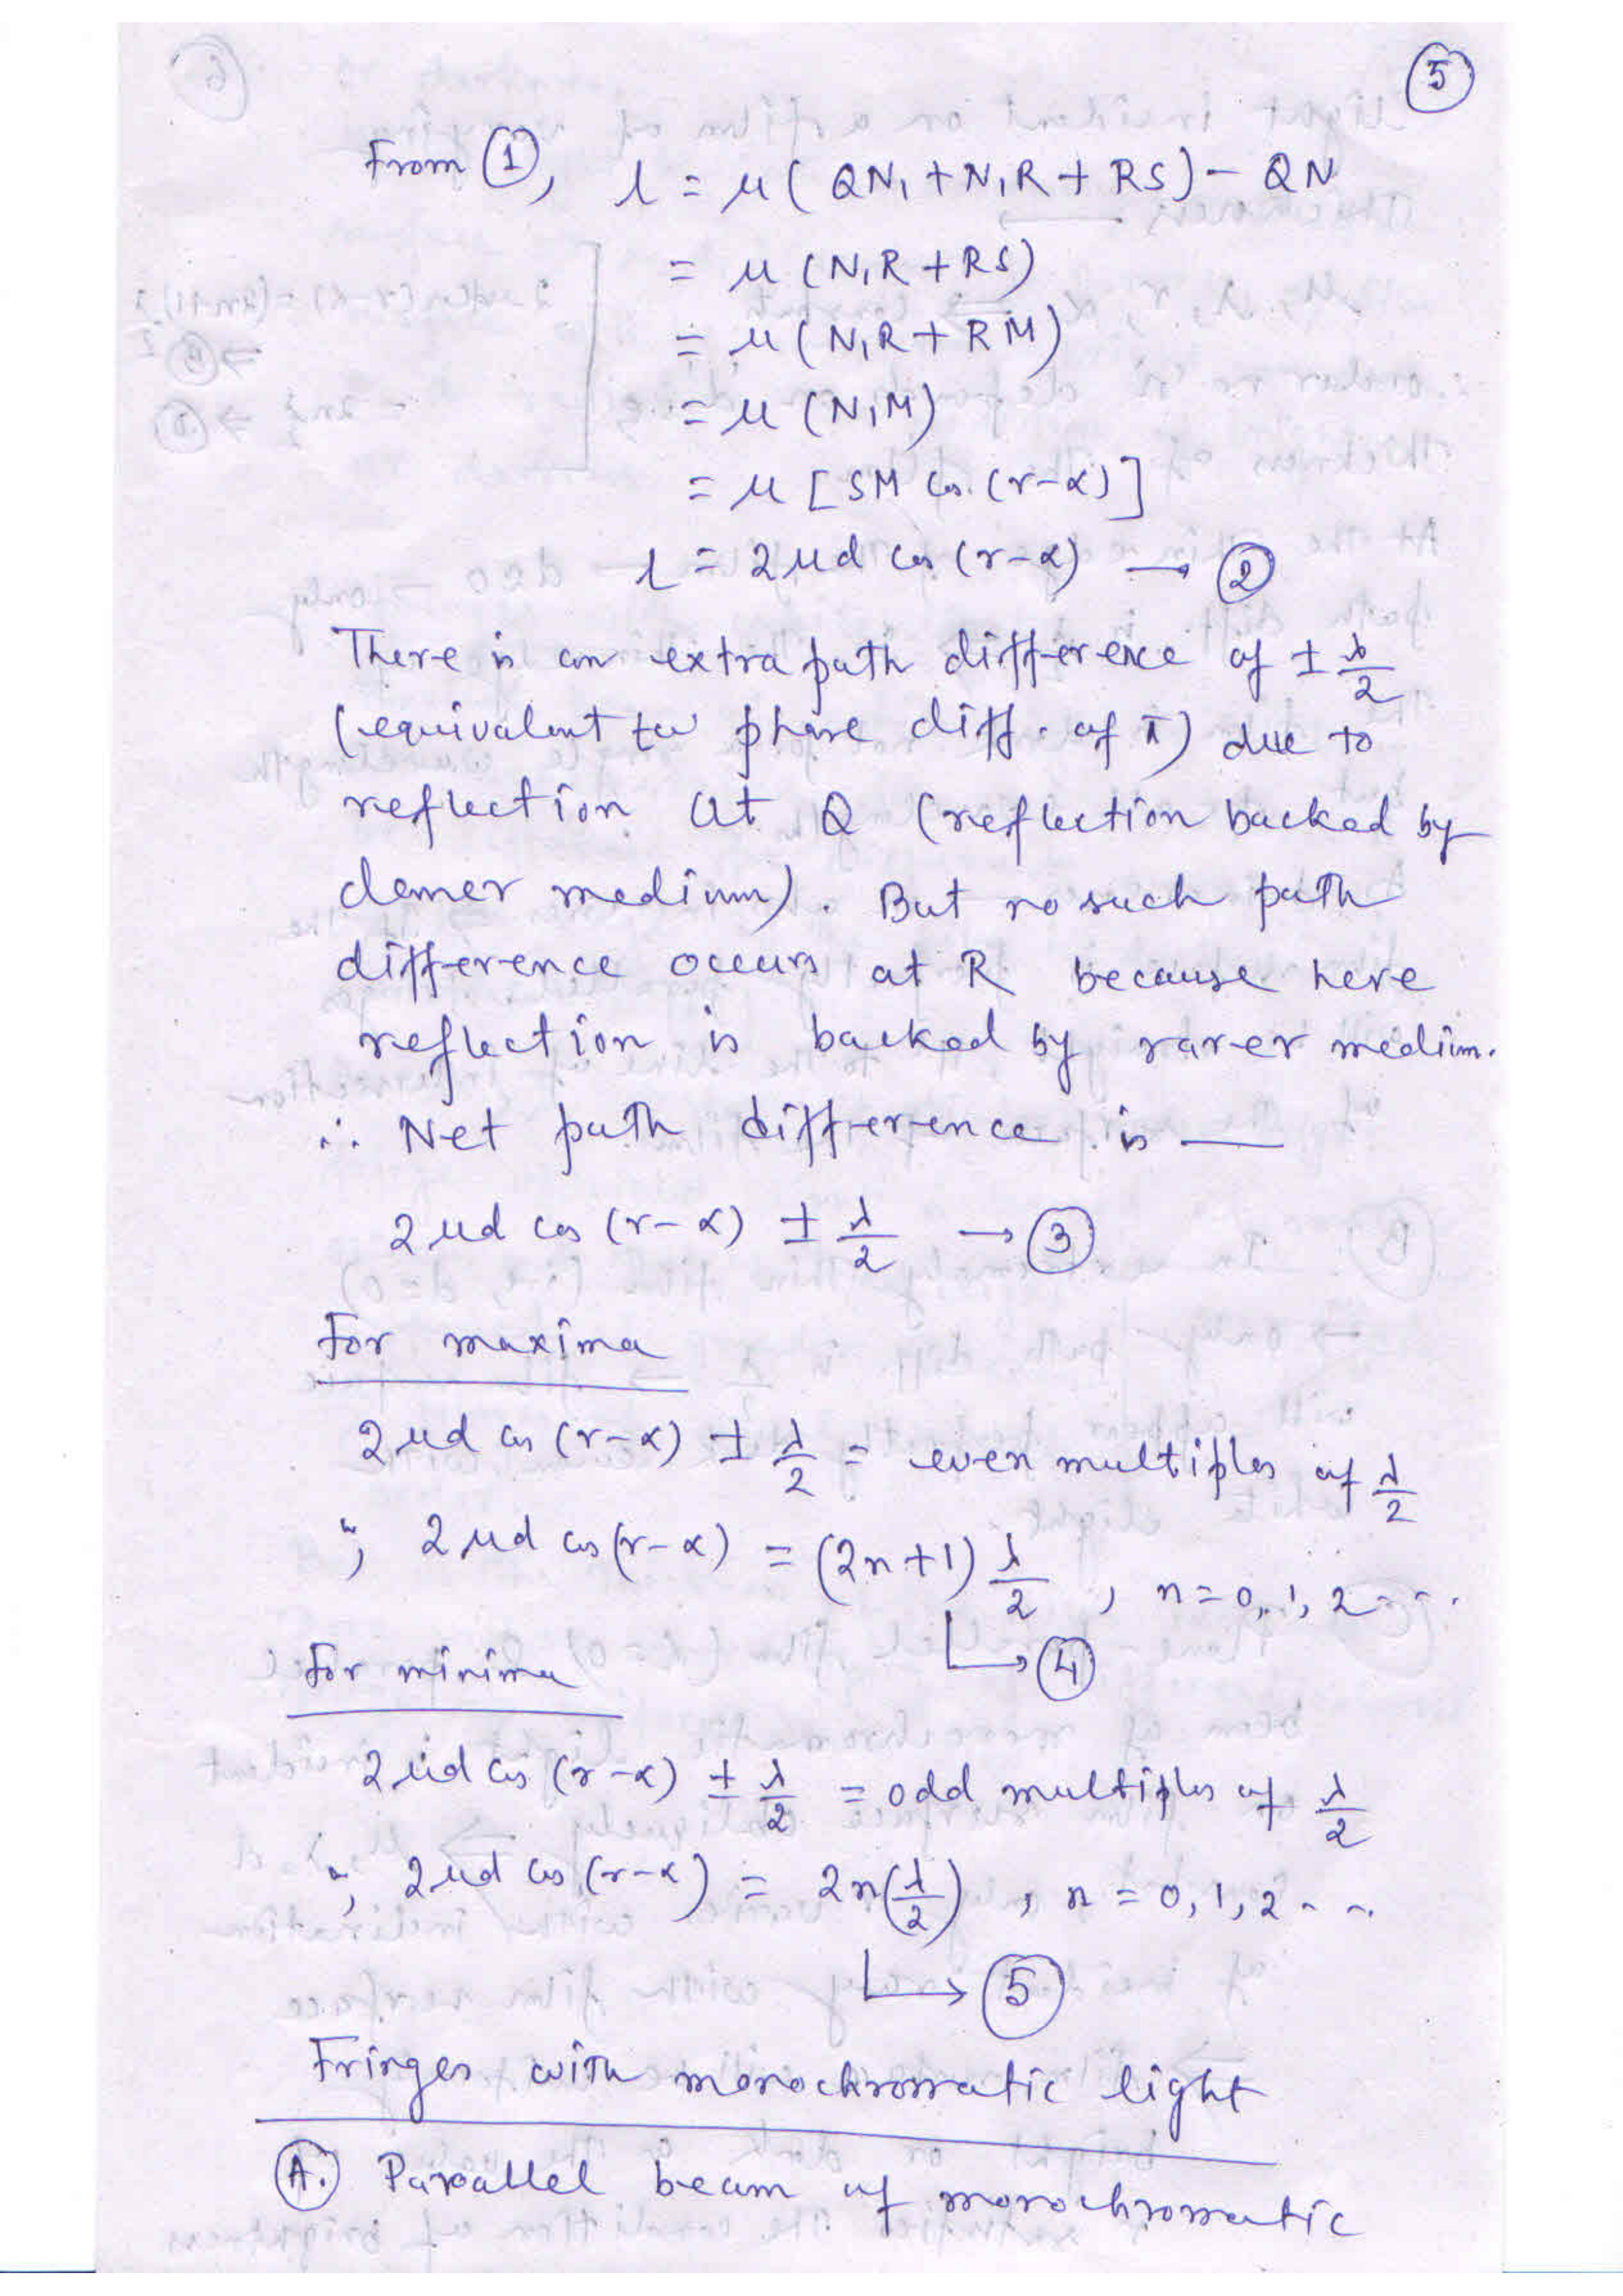 5
From ①, l = μ( QN₁ + N₁R + RS) - QN
= μ (N₁R + RS)
= μ (N₁R + RM)
= μ (N₁M)
= μ [SM cos (r-α)]
l = 2μd cos (r-α) → ②
There is an extra path difference of ± λ/2
(equivalent to phase diff. of π) due to
reflection at Q (reflection backed by
denser medium). But no such path
difference occurs at R because here
reflection is backed by rarer medium.
∴ Net path difference is —
2μd cos (r-α) ± λ/2 → ③
For maxima
2μd cos (r-α) ± λ/2 = even multiples of λ/2
", 2μd cos (r-α) = (2n+1) λ/2 , n = 0, 1, 2 - - .
↳ ④
For minima
2μd cos (r-α) ± λ/2 = odd multiples of λ/2
", 2μd cos (r-α) = 2n(λ/2) , n = 0, 1, 2 - - .
↳ ⑤
Fringes with monochromatic light
Ⓐ. Parallel beam of monochromatic